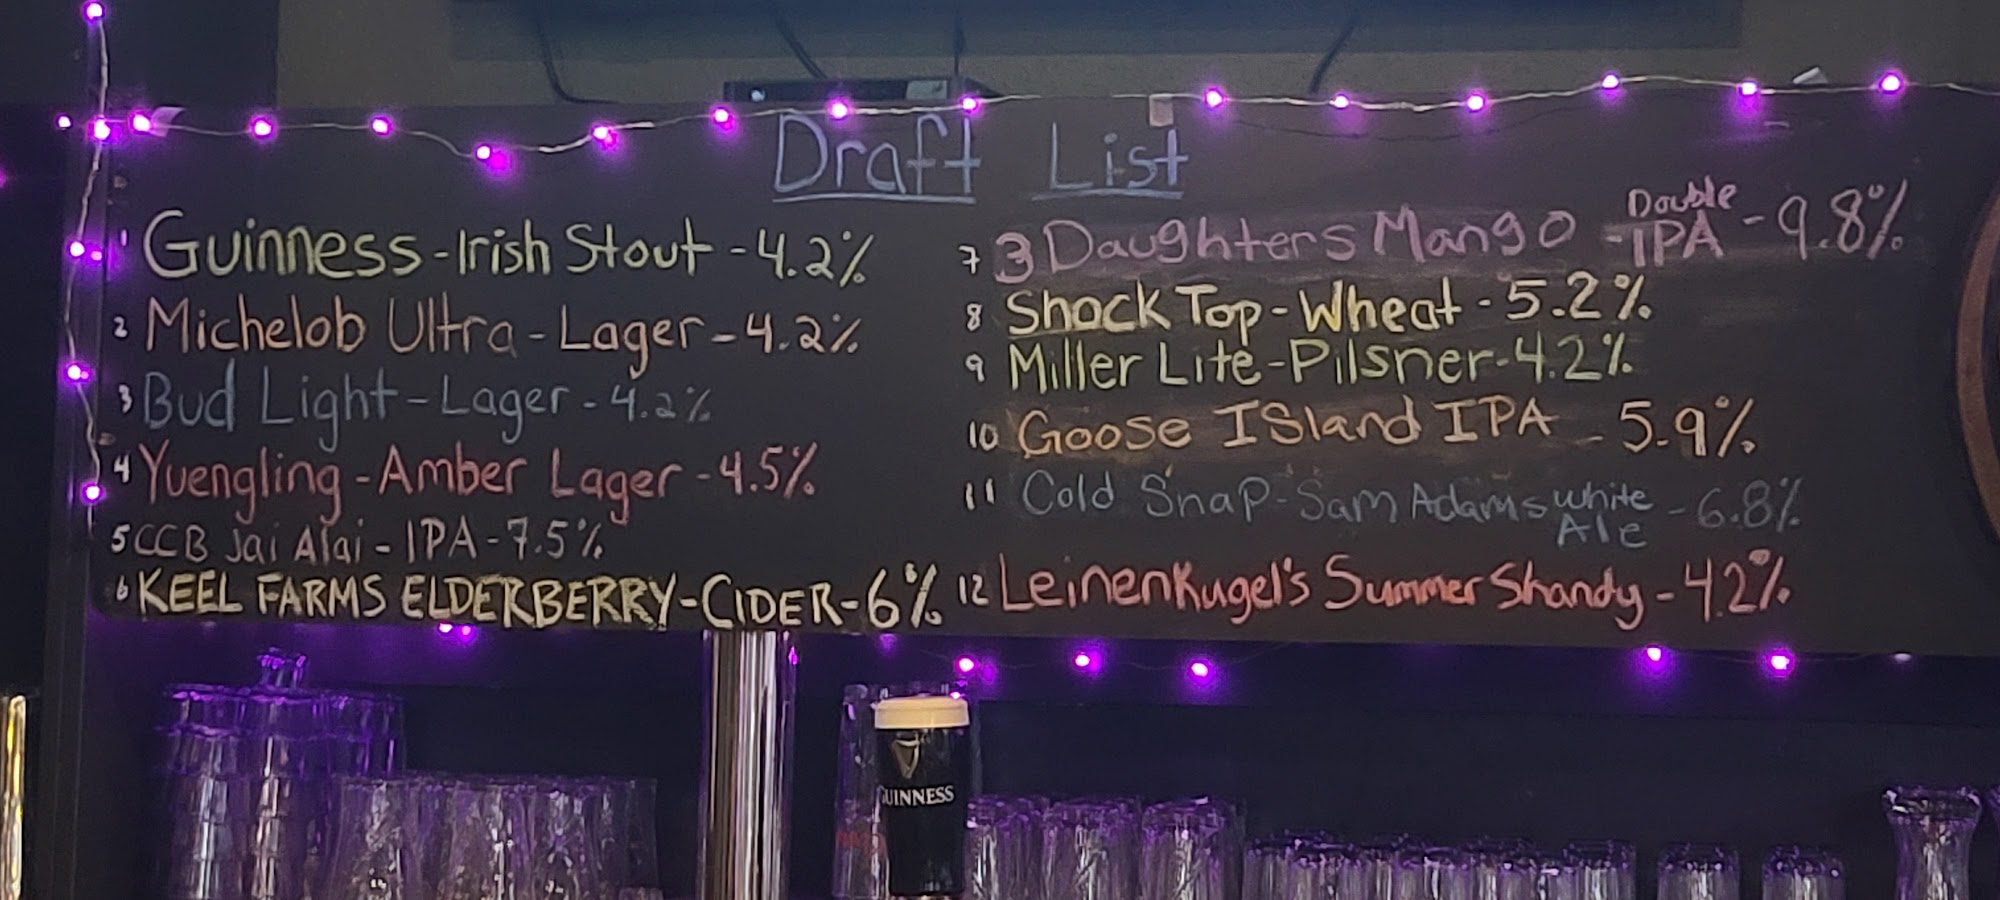 Draft List
1 Guinness - Irish Stout - 4.2%
2 Michelob Ultra - Lager - 4.2%
3 Bud Light - Lager - 4.2%
4 Yuengling - Amber Lager - 4.5%
5 CCB Jai Alai - IPA - 7.5%
6 KEEL FARMS ELDERBERRY - CIDER - 6%
7 3 Daughters Mango - Double IPA - 9.8%
8 Shock Top - Wheat - 5.2%
9 Miller Lite - Pilsner - 4.2%
10 Goose ISland IPA - 5.9%
11 Cold Snap - Sam Adams white Ale - 6.8%
12 Leinenkugel's Summer Shandy - 4.2%
GUINNESS